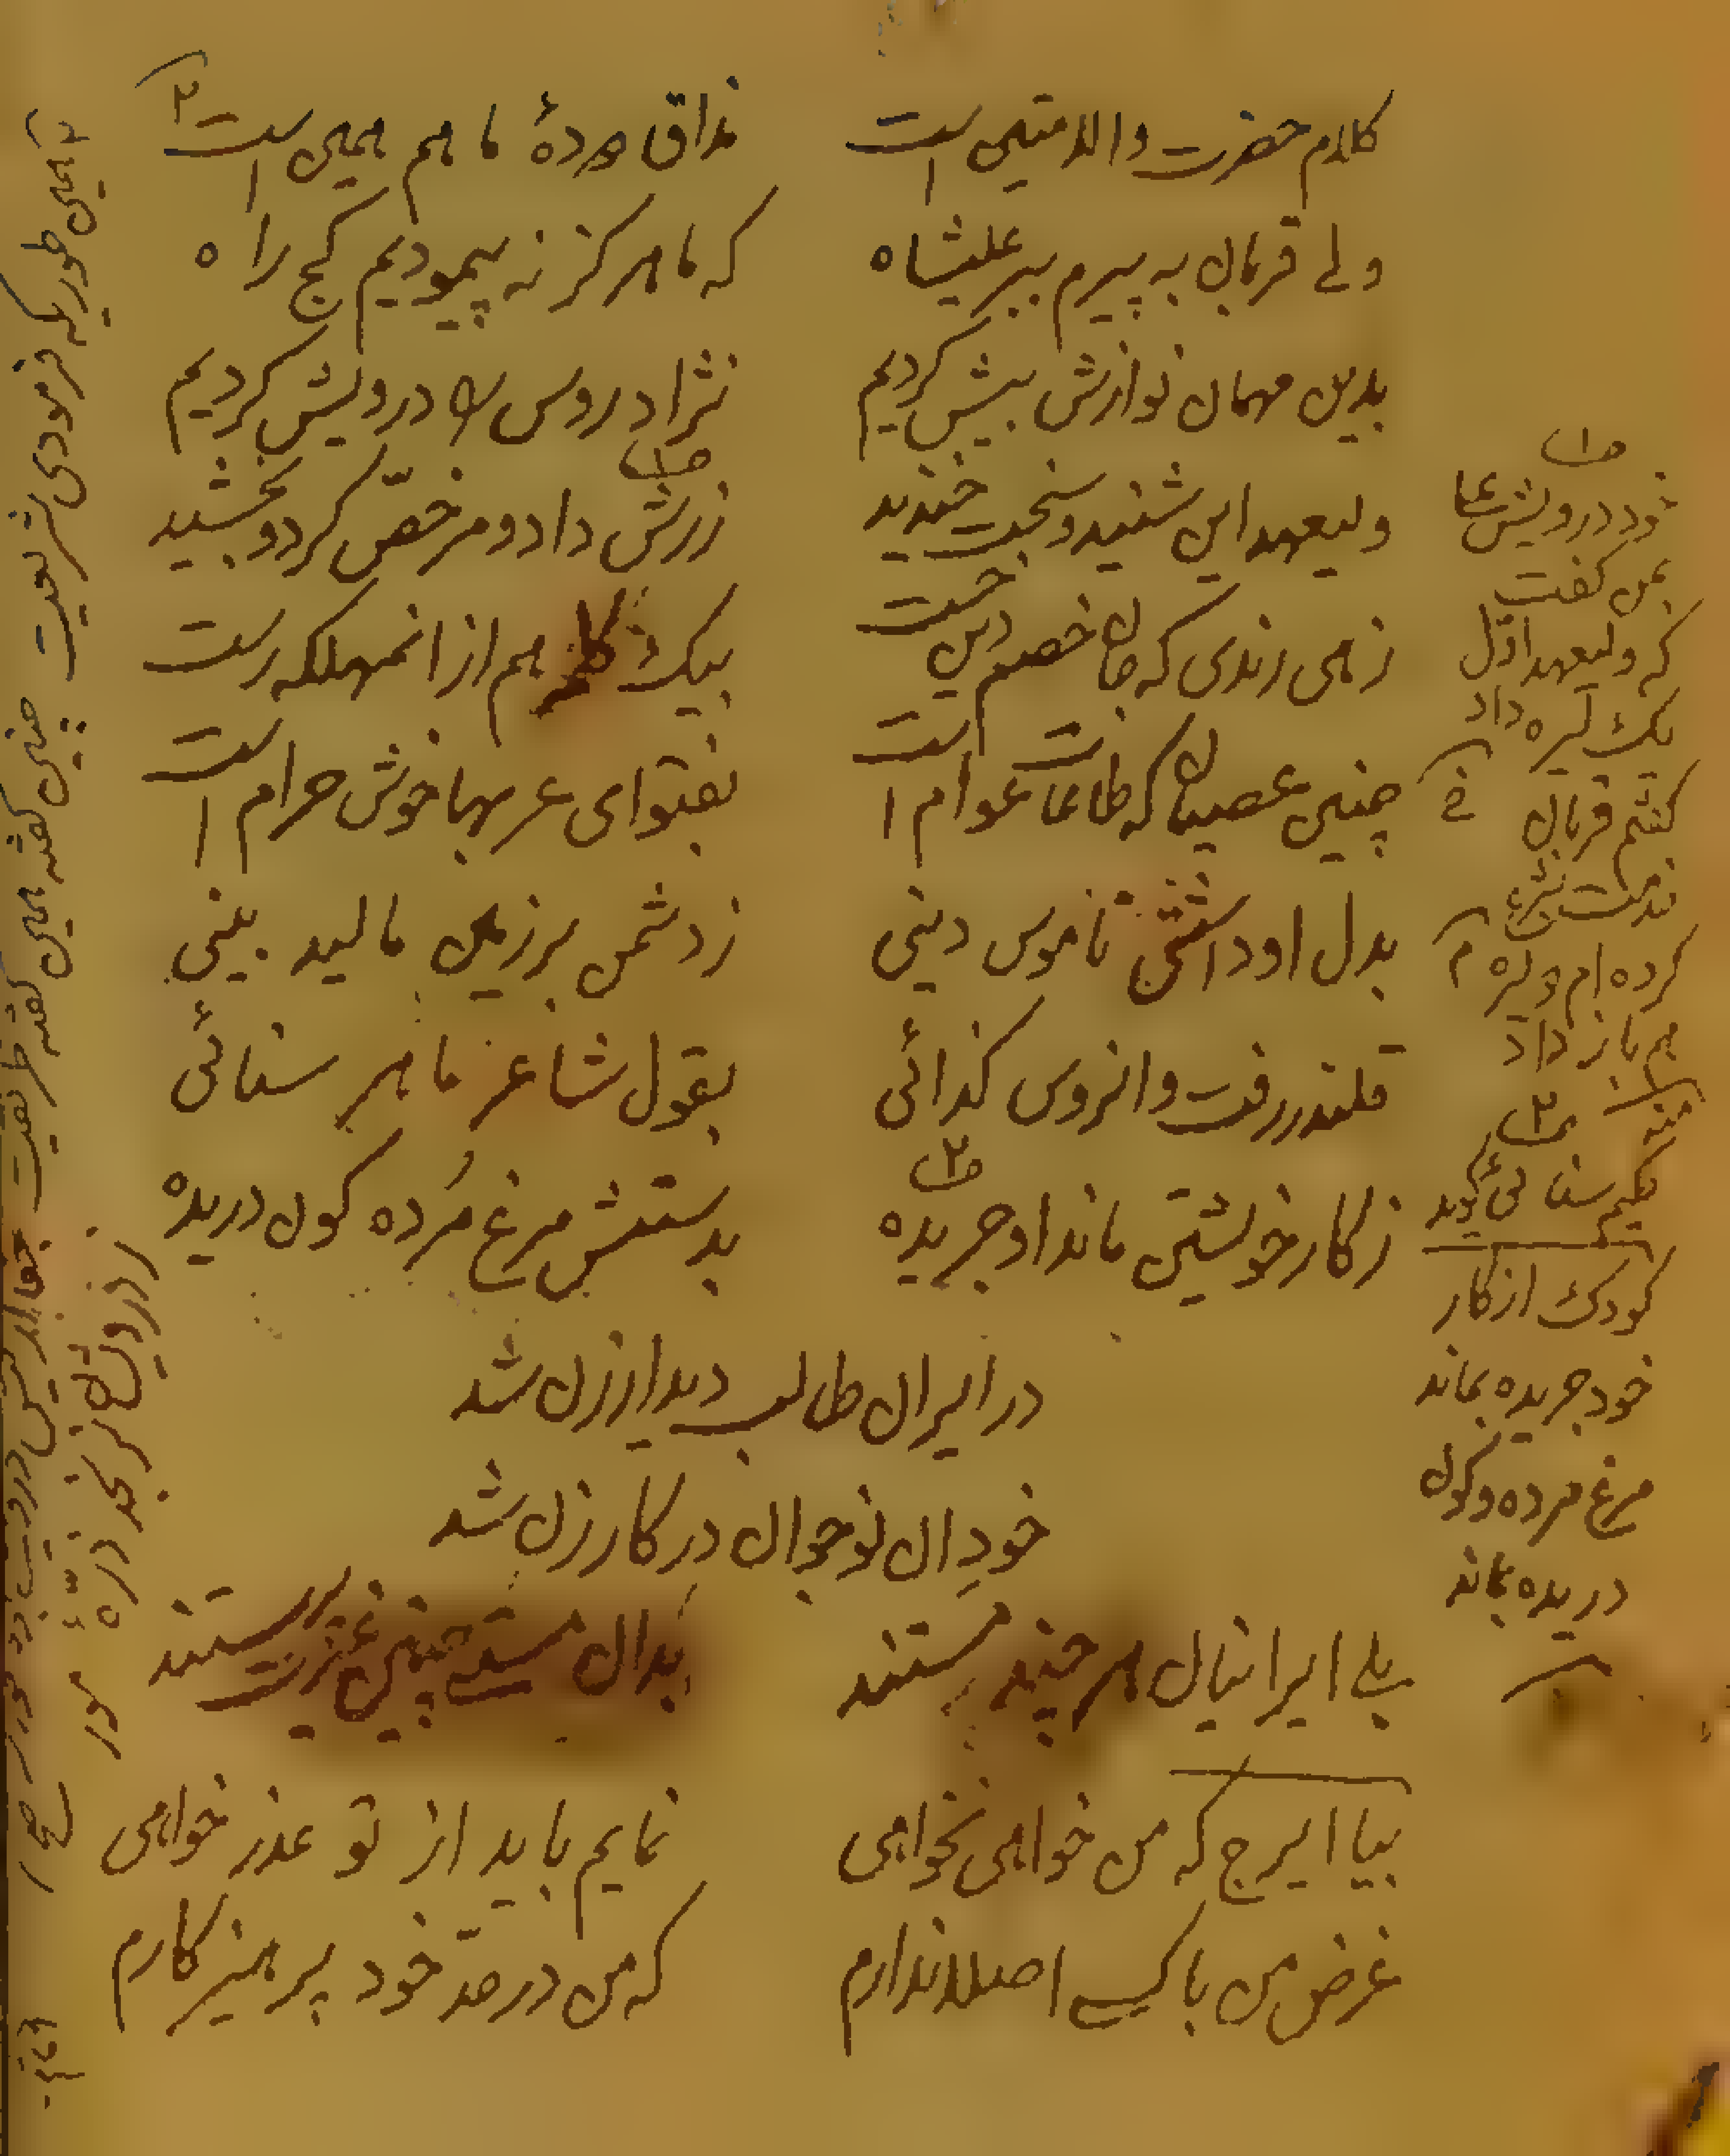 کلام حضرت والا متین است
مذاق مردهٔ ما هم همین است
ولی قربان به پیرم ببر علیشاه
که ما هرگز نه پیمودیم کج راه
بدین مهمان نوازش بیش کردیم
نژاد روس را درویش کردیم
ولیعهد این شنید و سخت خندید
زرش داد و مرخصّ کرد و بخشید
زهی رندی که جان خصم دین خست
بیک کار هم از انمهلکه رست
چنین عصیان که طاعات عوام است
بفتوای عربها خوش حرام است
بدل او داشتی ناموس دینی
زدشمن بر زمین مالید بینی
قلندر رفت وانروس کذائی
بقول شاعر ماهر سنائی
زکار خویشتن ماند او جریده
بدستش مرغ مُرده کون دریده
در ایران طالب دیدار زن شد
خودِ ان نوجوان در کار زن شد
بلی ایرانیان هر چند مستند
بدان مستی چنین غیرت پرستند
بیا ایرج که من خواهی نخواهی
نمایم باید از تو عذر خواهی
غرض من با کسی اصلا ندارم
که من در حدّ خود پرهیز کارم
۱
خود درویش
بمن گفت
که ولیعهد اول
یک لیره داد
گفتم قربان
خدمت
کرده ام و لیره
هم باز داد
منه
۲
حکیم سنائی گوید
کودک از کار
خود جریده بماند
مرغ مرده و کون
دریده بماند
همین طوریکه فرمودی شریعت چنین گفته همین گفته طریقت